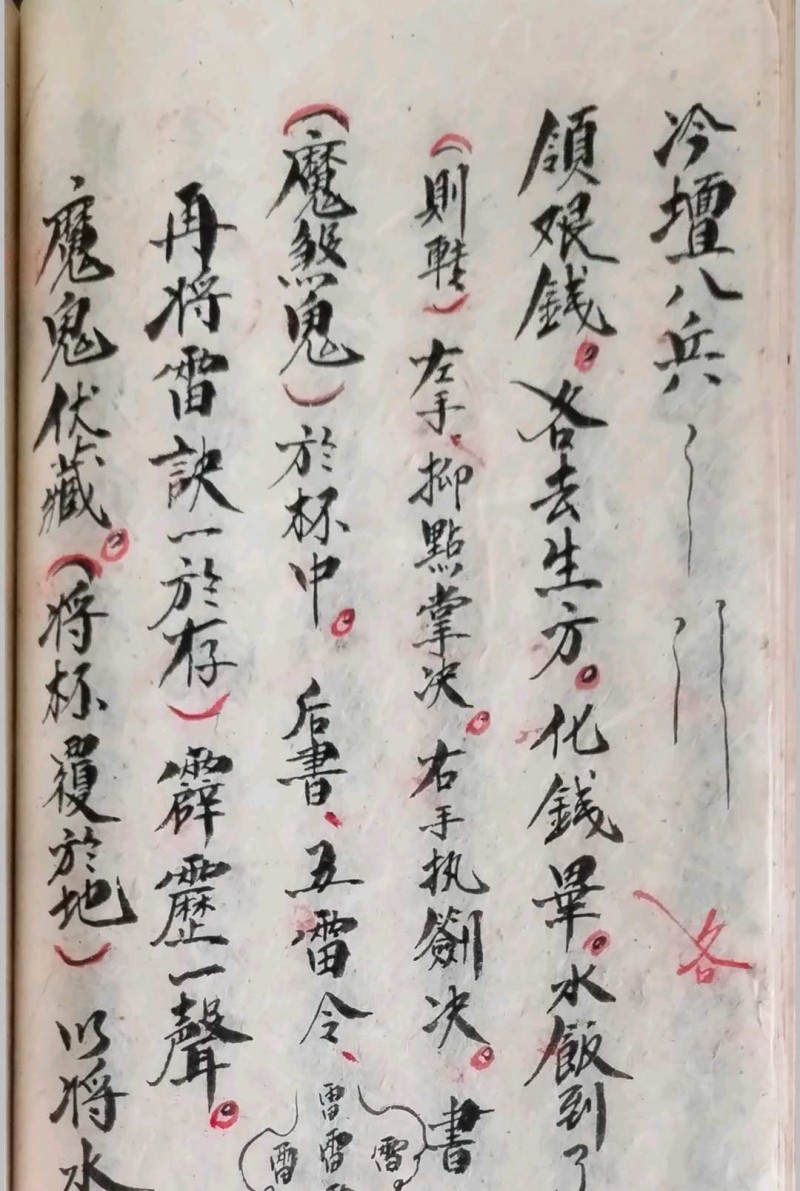 冷壇八兵
各
領艰錢。各去生方。化錢畢。水飯到了
（則轉）左手、抑點掌决。右手执劍决。書
（魔煞鬼）於杯中。后書、五雷令、
雷
雷
雷
雷
再将雷訣一於存）霹靂一聲。
魔鬼伏藏。（将杯覆於地）以将水